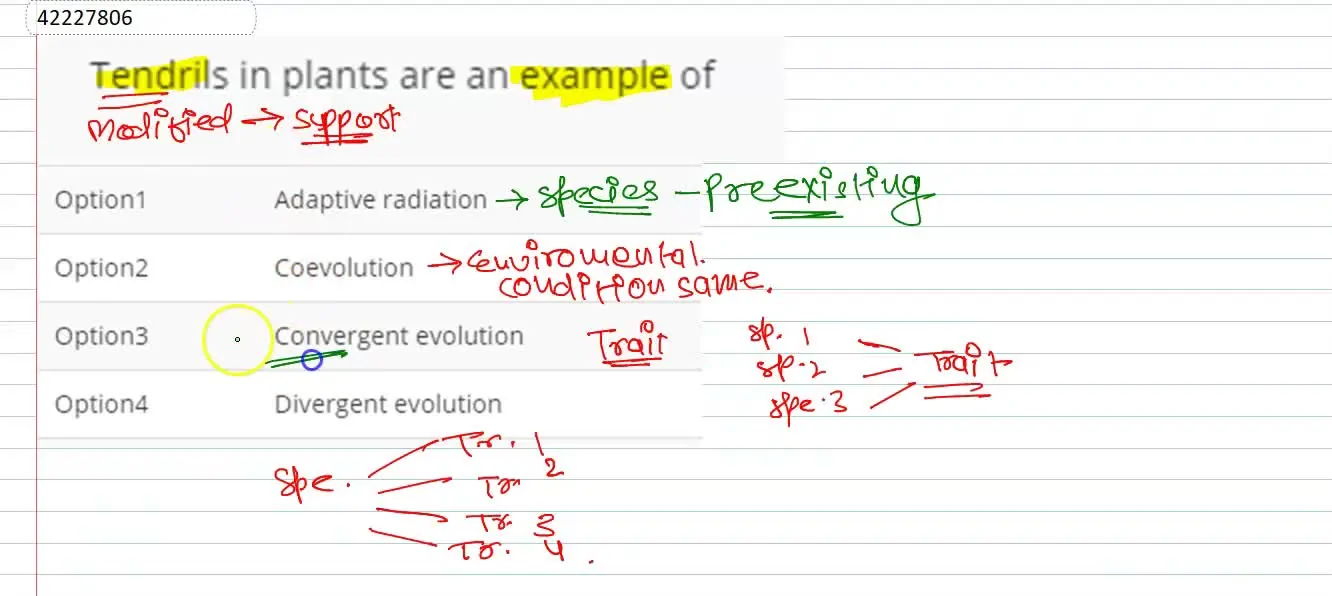 42227806
Tendrils in plants are an example of
Modified → Support
Option1 Adaptive radiation → Species - Preexisting
Option2 Coevolution → enviromental.
condition same.
Option3 Convergent evolution Trait
sp. 1
sp. 2 Trait
spe. 3
Option4 Divergent evolution
Spe. Tr. 1
Tr. 2
Tr. 3
Tr. 4 .